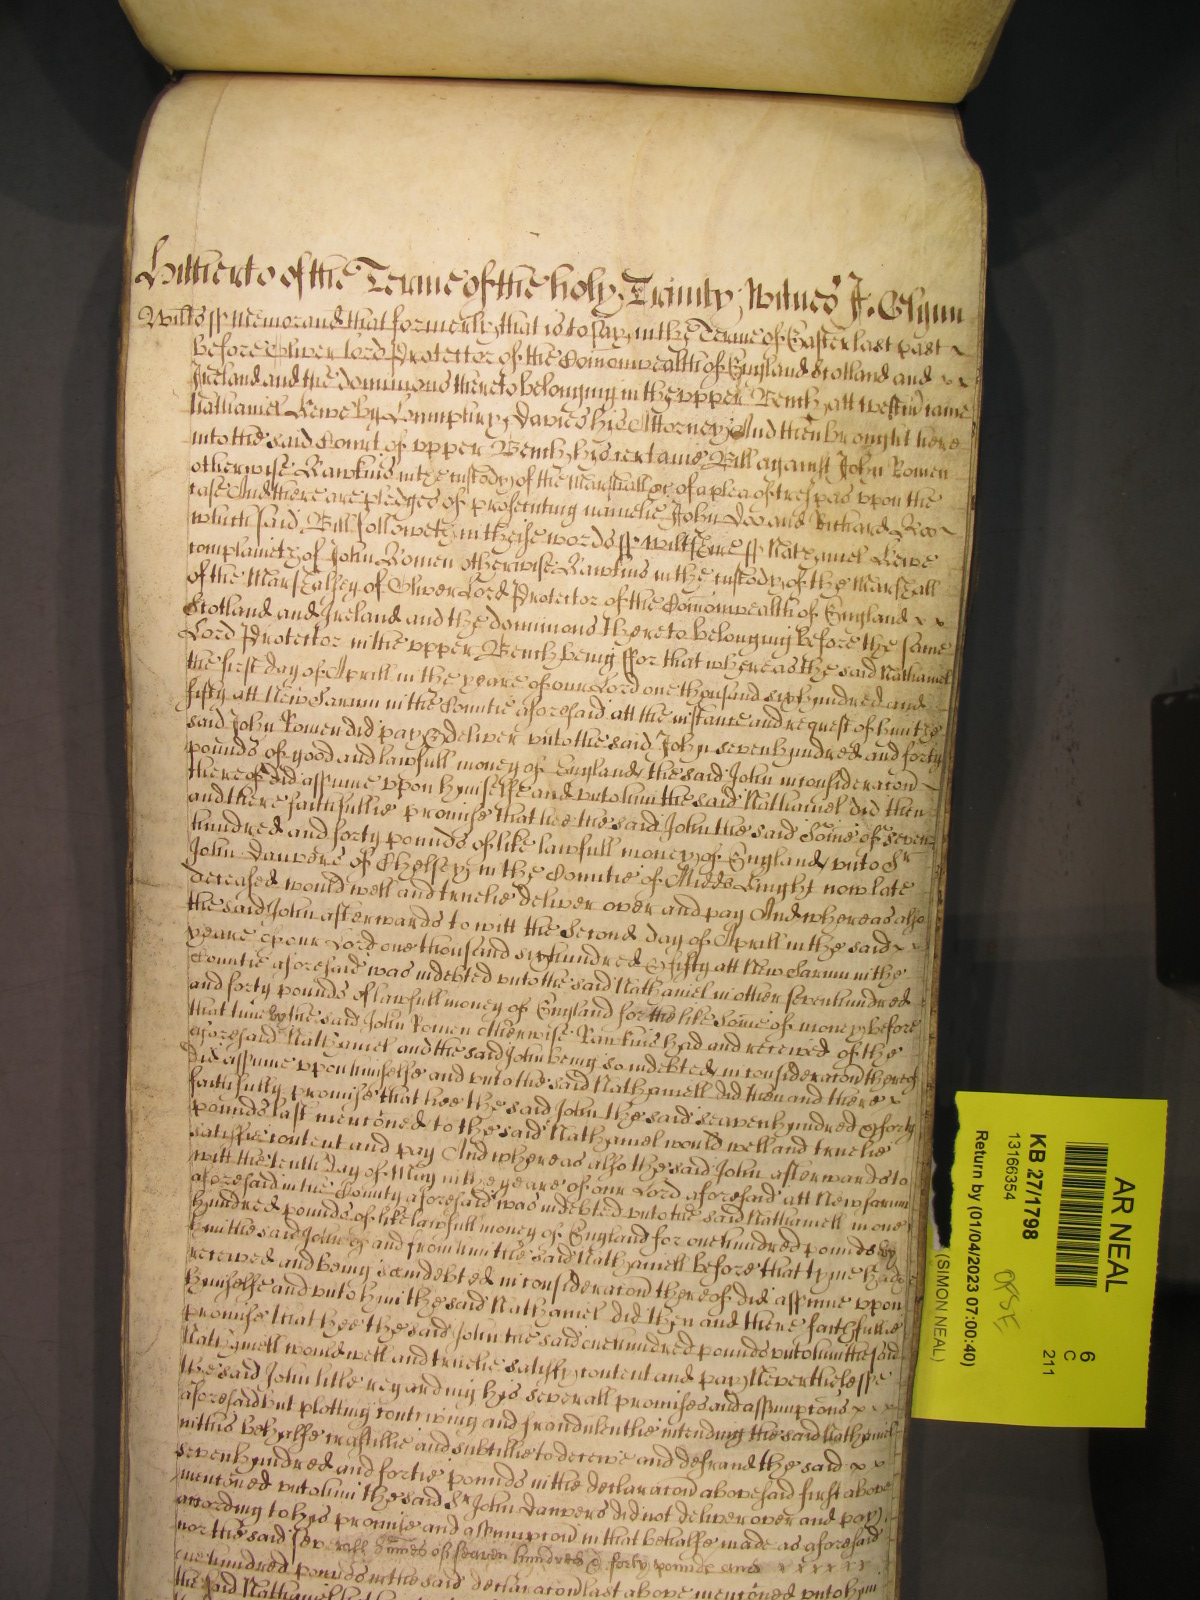 Hitherto of the Terme of the holy Trinity, Witnes J. Glynn
Wilts ss Memorand that formerly that is to say in the Terme of Easter last past
before Oliver Lord Protector of the Comonwealth of England Scotland and x x
Ireland and the dominions thereto belonging in the upper Bench att Westm came
Nathaniel Rewe by Davies his Attorney And then brought here
into the said Court of upper Bench his certaine Bill against John Romen
otherwise Rawkins in the custody of the Marshall &c of a plea of trespas upon the
case And there are pledges of prosecuting namelie John Doo and Richard Roo
which said Bill followeth in theise words ss Wiltshire ss Nathaniel Rewe
complaineth of John Romen otherwise Rawkins in the custody of the Marshall
of the Marshalsey of Oliver Lord Protector of the Comonwealth of England x x
Scotland and Ireland and the dominions thereto belonging before the same
Lord Protector in the upper Bench being ffor that whereas the said Nathaniel
the first day of Aprill in the yeare of our Lord one thousand six hundred and
fifty att New Sarum in the Countie aforesaid att the instance and request of him the
said John Romen did pay & deliver unto the said John seven hundred and forty
pounds of good and lawfull money of England the said John in consideracon
thereof did assume upon himselfe and unto him the said Nathaniel did then
and there faithfullie promise that hee the said John the said some of seven
hundred and forty pounds of like lawfull money of England unto Sr
John Danvers of Chelsey in the Countie of Midds Knight now late
deceased would well and truelie deliver over and pay And whereas also
the said John afterwards to witt the second day of Aprill in the said x x
yeare of our Lord one thousand six hundred & fifty att New Sarum in the
Countie aforesaid was indebted unto the said Nathaniel in other seven hundred
and forty pounds of lawfull money of England for the like some of money before
that time by the said John Romen otherwise Rawkins had and received of the
aforesaid Nathaniel and the said John being so indebted in consideracon thereof
did assume upon himselfe and unto the said Nathaniell did then and there x
faithfully promise that hee the said John the said seaven hundred & forty
pounds last mencioned to the said Nathaniel would well and truelie
satisfie content and pay And whereas also the said John afterwards to
witt the tenth day of May in the yeare of our Lord aforesaid att New Sarum
aforesaid in the County aforesaid was indebted unto the said Nathaniell in one
hundred pounds of like lawfull money of England for one hundred pounds by
him the said John of and from him the said Nathaniell before that tyme had &
received and being soe indebted in consideracon thereof did assume upon
himselfe and unto him the said Nathaniel did then and there faithfullie
promise that hee the said John the said one hundred pounds unto him the said
Nathaniell would well and truelie satisfy content and pay Neverthelesse
the said John litle regarding his severall promises and assumptions x x x
aforesaid but plotting contriving and fraudulentlie intending the said Nathaniel
in this behalfe craftillie and subtillie to deceive and defraud the said x x
seven hundred and fortie pounds in the declaracon abovesaid first above
mencioned unto him the said Sr John Danvers did not deliver over and pay
according to his promise and assumpcion in that behalfe made as aforesaid
nor the said severall somes of seaven hundred & forty pounds and x x x x x x
one hundred pounds in the said declaracon last above mencioned unto him
the said Nathaniel
AR NEAL
6
C
211
KB 27/1798
13166354
Return by (01/04/2023 07:00:40)
(SIMON NEAL)